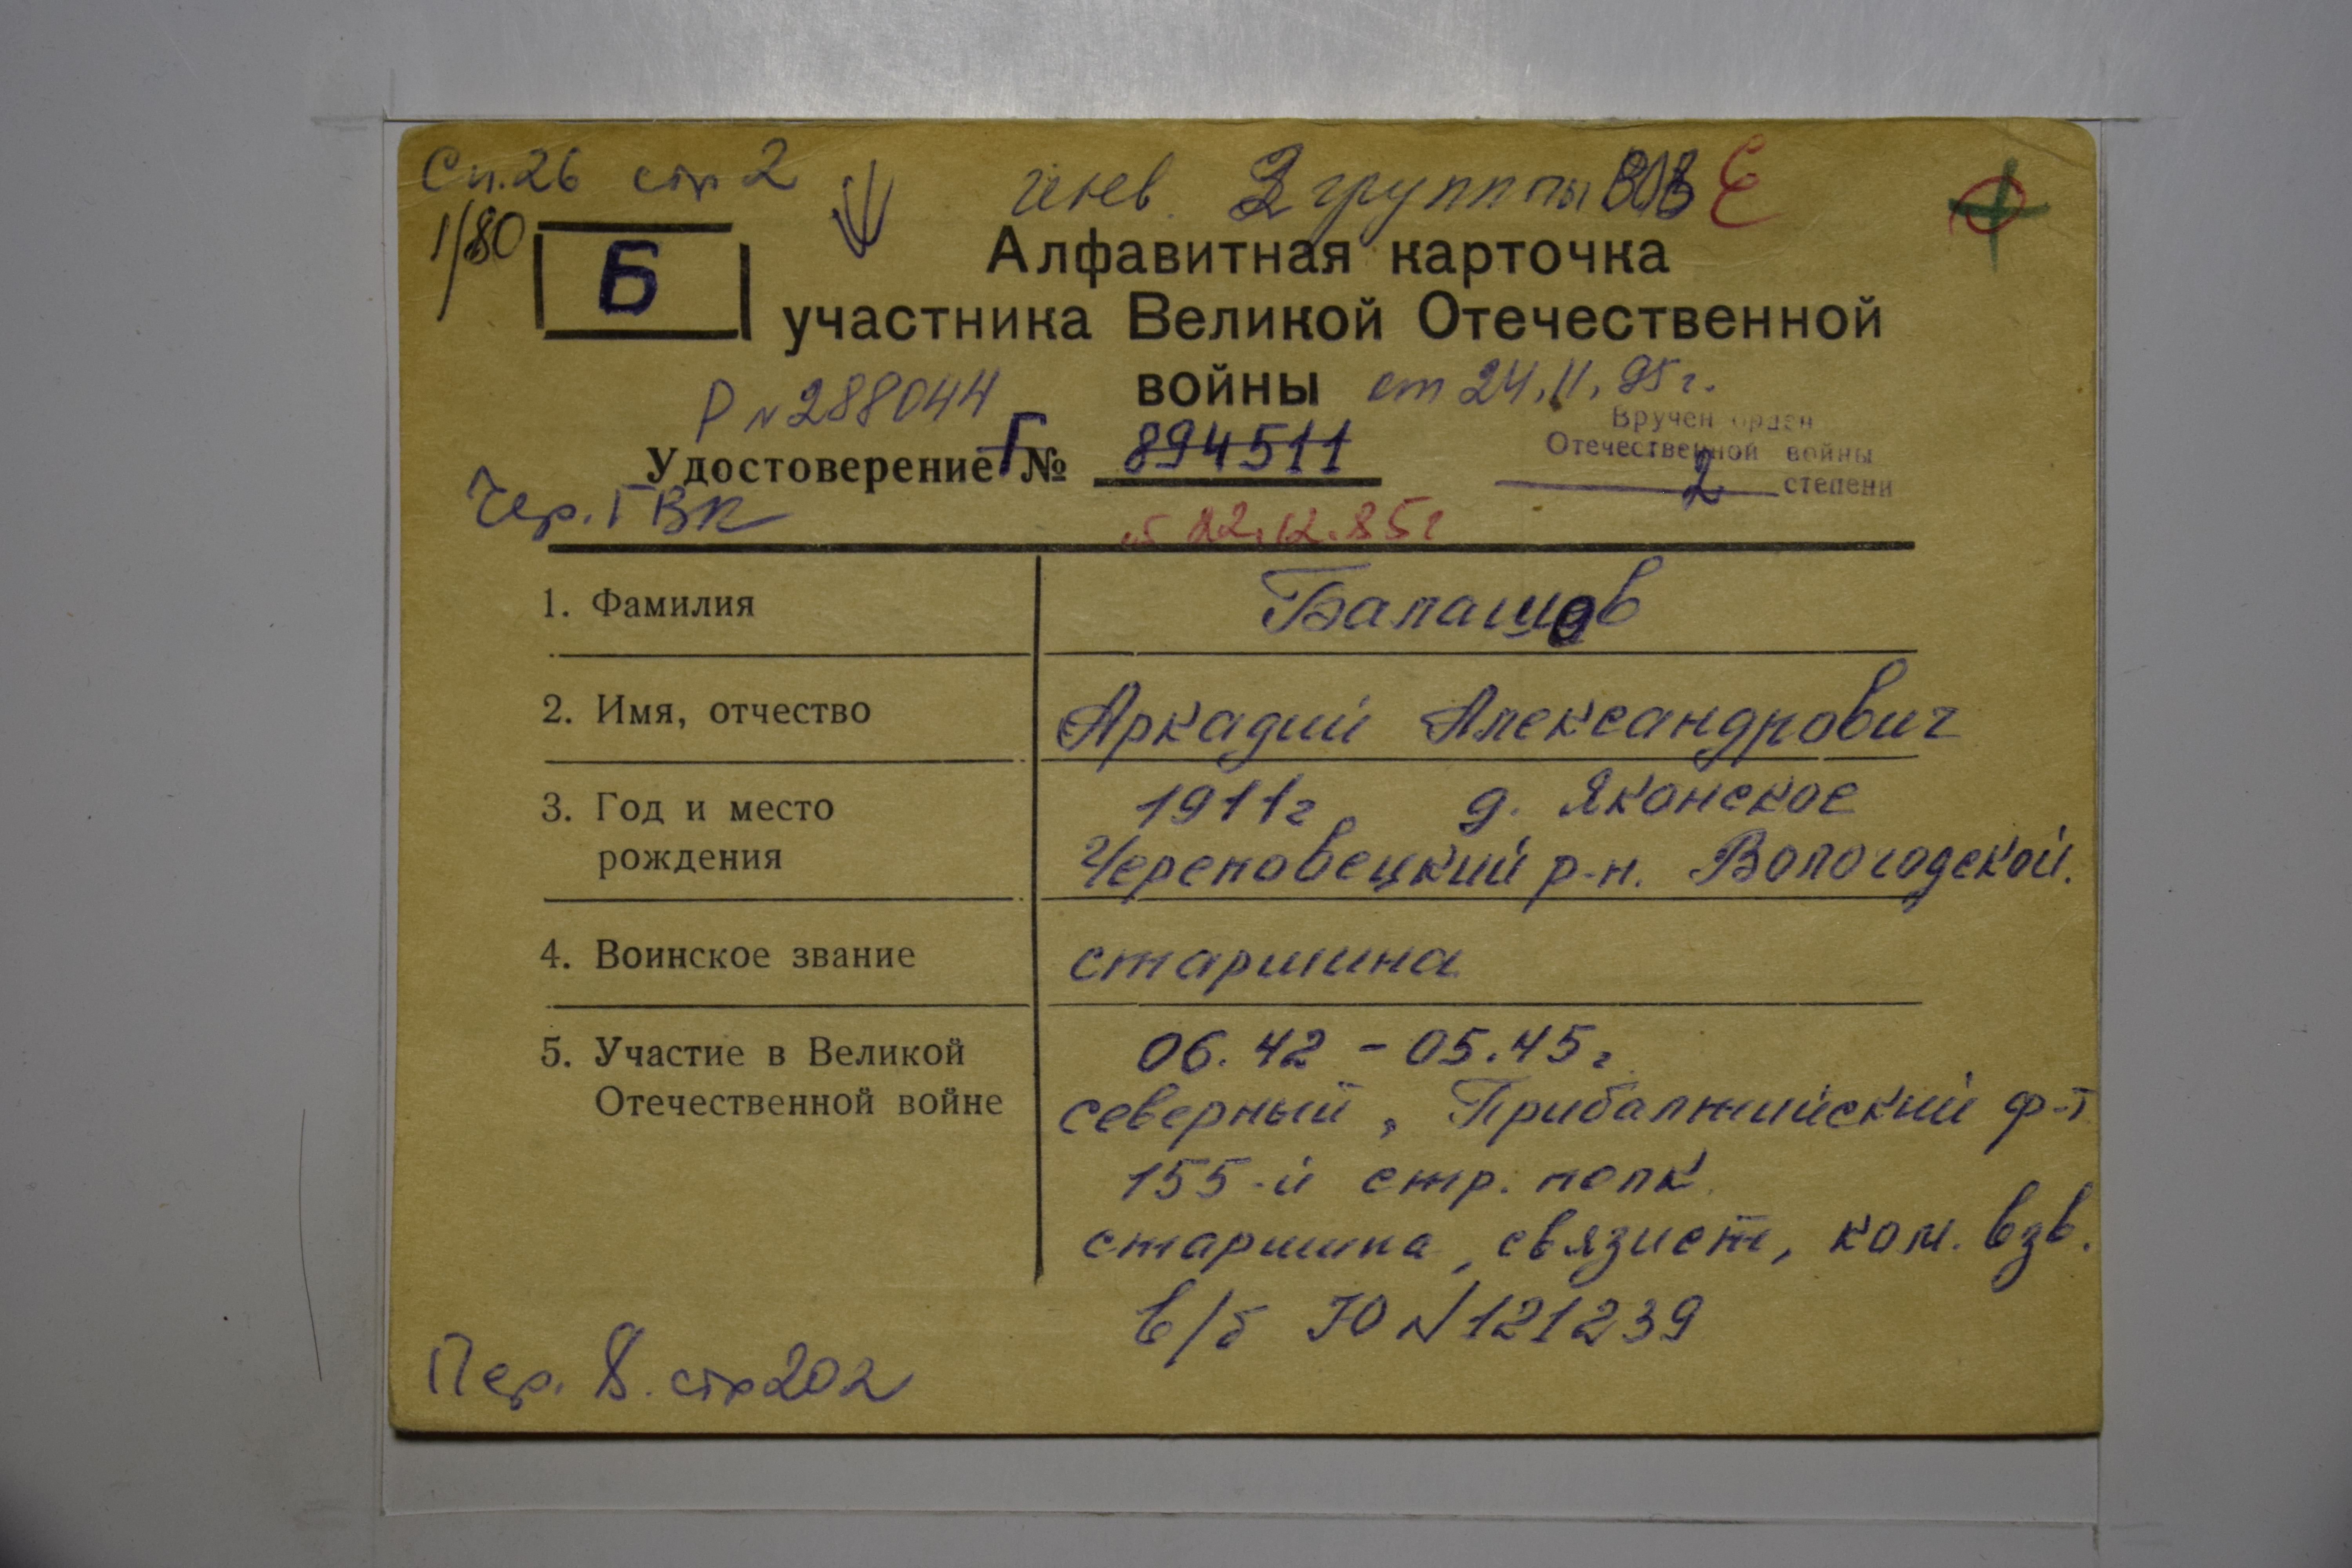 Сп. 26 стр 2
инв. 2 группы ВОВ
1/80
Б
Алфавитная карточка
участника Великой Отечественной
войны от 24.11.95г.
Р N 288044
Вручен орден
Отечественной войны
2 степени
Удостоверение Г № 894511
Чер. ГВК
22.12.85г
1. Фамилия Балашов
2. Имя, отчество Аркадий Александрович
3. Год и место рождения 1911г д. Яконское
Череповецкий р-н. Вологодской.
4. Воинское звание старшина
5. Участие в Великой Отечественной войне 06.42 - 05.45г
северный, Прибалтийский ф-т
155-й стр. полк
старшина, связист, ком. взв.
в/б Ю N 121239
Пер. 8. стр 202